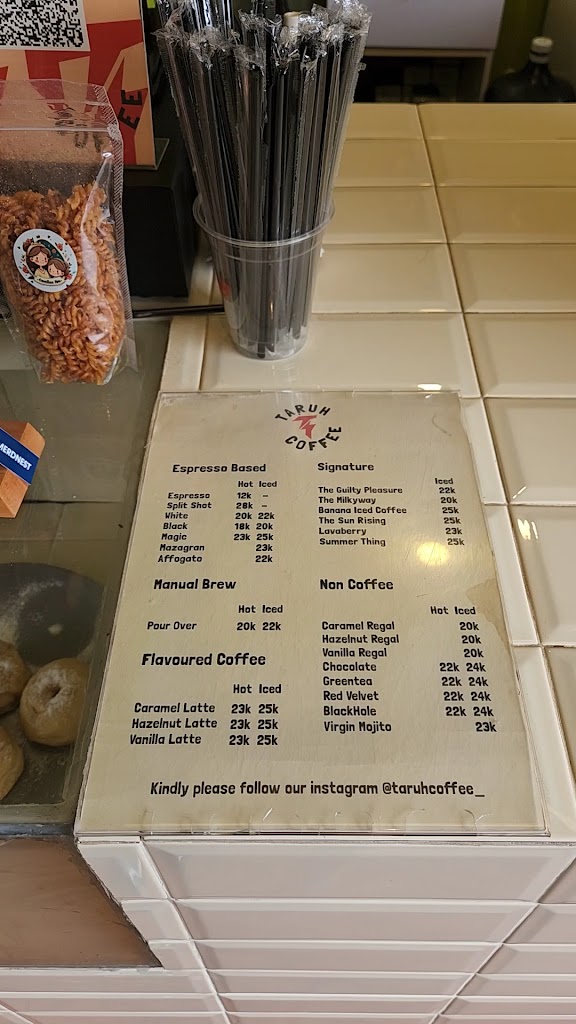 TARUH
COFFEE
Espresso Based
Hot Iced
Espresso 12k –
Split Shot 28k –
White 20k 22k
Black 18k 20k
Magic 23k 25k
Mazagran 23k
Affogato 22k
Manual Brew
Hot Iced
Pour Over 20k 22k
Flavoured Coffee
Hot Iced
Caramel Latte 23k 25k
Hazelnut Latte 23k 25k
Vanilla Latte 23k 25k
Signature
Iced
The Guilty Pleasure 22k
The Milkyway 20k
Banana Iced Coffee 25k
The Sun Rising 25k
Lavaberry 23k
Summer Thing 25k
Non Coffee
Hot Iced
Caramel Regal 20k
Hazelnut Regal 20k
Vanilla Regal 20k
Chocolate 22k 24k
Greentea 22k 24k
Red Velvet 22k 24k
BlackHole 22k 24k
Virgin Mojito 23k
Kindly please follow our instagram @taruhcoffee_
MERDNEST